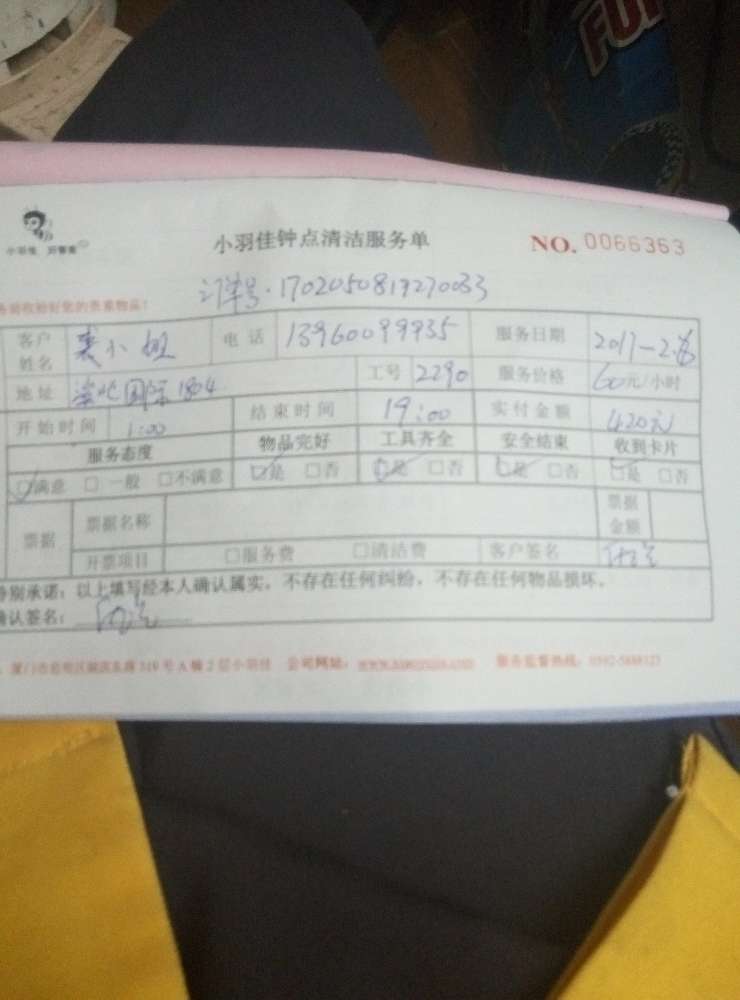 FU
小羽佳 好管家
小羽佳钟点清洁服务单
NO. 0066363
订单号·1702050819270033
客户姓名 小姐 电话 13960099935 服务日期 2017-2.
地址 国际1804 工号 2290 服务价格 60元/小时
开始时间 1:00 结束时间 19:00 实付金额 420元
服务态度 物品完好 工具齐全 安全结束 收到卡片
□满意 □一般 □不满意 □是 □否 □是 □否 □是 □否 □是 □否
票据 票据名称 票据金额
开票项目 □服务费 □清洁费 客户签名
特别承诺：以上填写经本人确认属实，不存在任何纠纷，不存在任何物品损坏。
确认签名：
310号A幢2层小羽佳 公司网站： 服务监督热线：